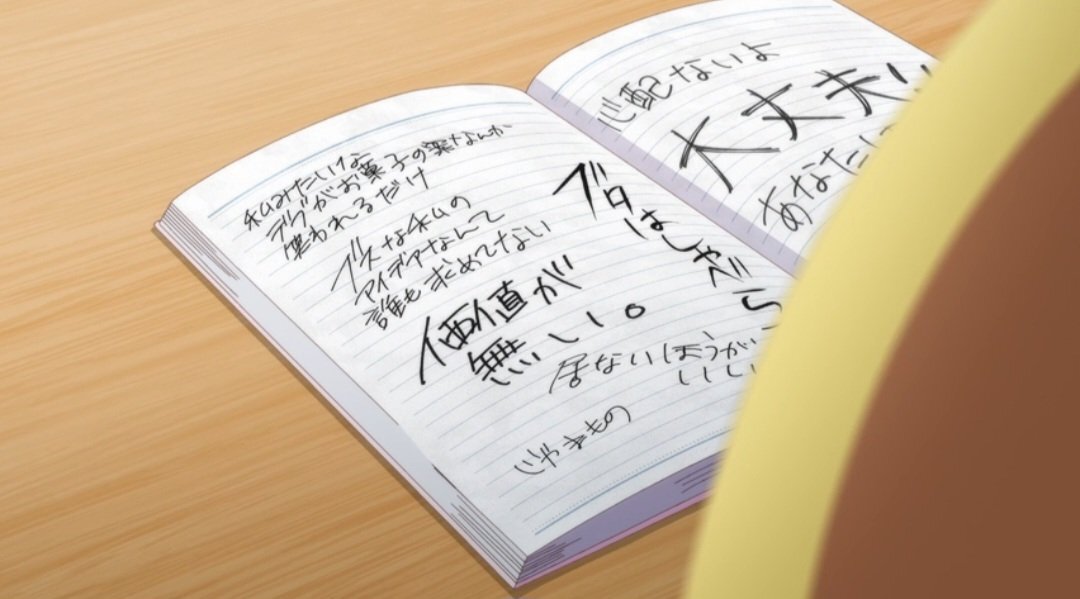 私みたいな
デブがお菓子の なんか
笑われるだけ
ブスな私の
アイデアなんて
誰も求めてない
価値が
無い。
はしゃ
居ないほうが
いいい
じゃまもの
心配ないよ
大丈夫
あなた